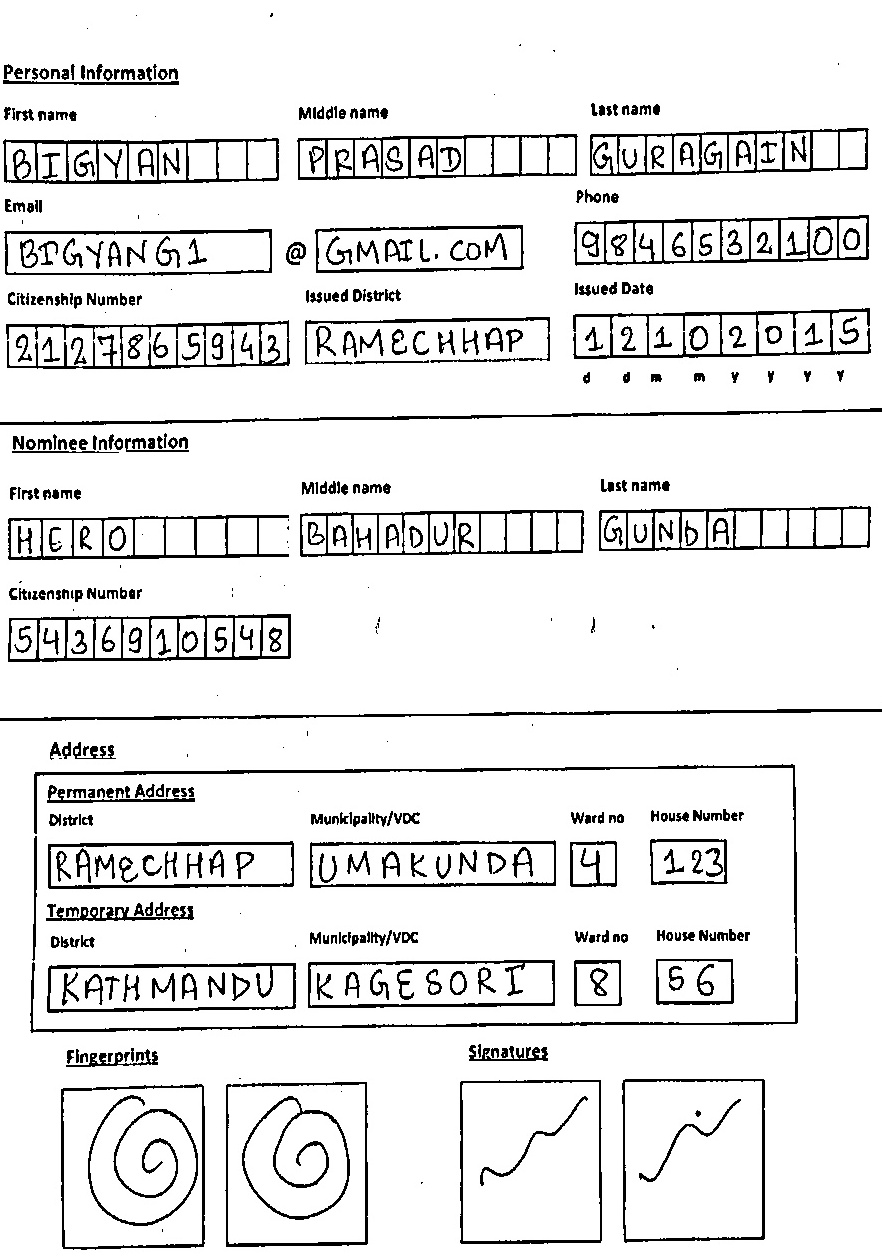 Personal Information
First name Middle name Last name
BIGYAN PRASAD GURAGAIN
Email Phone
BIGYANG1 @ GMAIL.COM 9846532100
Citizenship Number Issued District Issued Date
2127865943 RAMECHHAP 12102015
d d m m y y y y
Nominee Information
First name Middle name Last name
HERO BAHADUR GUNDA
Citizenship Number
5436910548
Address
Permanent Address
District Municipality/VDC Ward no House Number
RAMECHHAP UMAKUNDA 4 123
Temporary Address
District Municipality/VDC Ward no House Number
KATHMANDU KAGESORI 8 56
Fingerprints Signatures